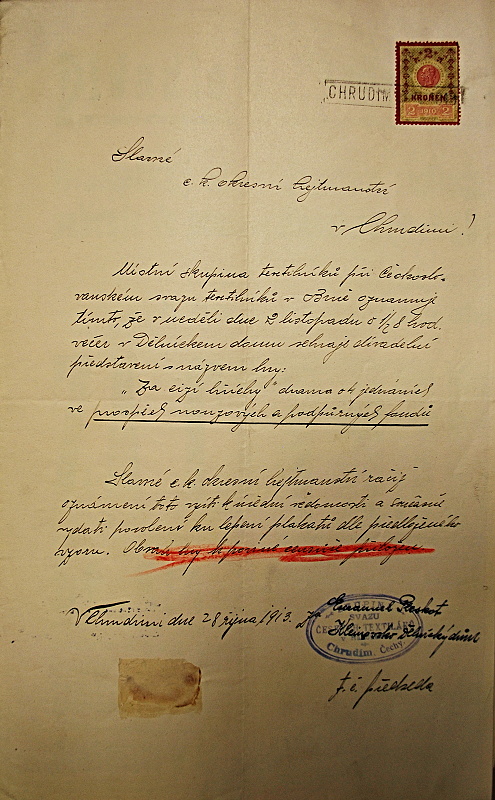 CHRUDIM
2
KRONEN
2 1910 2
Slavné
c. k. okresní hejtmanství
v Chrudimi!
Místní skupina textilníků při Českoslo-
vanském svazu textilníků v Brně oznamuje
tímto, že v neděli dne 2 listopadu o 1/2 8 hod.
večer v Dělnickém domu sehraje divadelní
představení s názvem hry:
„Za cizí hříchy" drama o 4 jednáních
ve prospěch nouzových a podpůrných fondů
Slavné c. k. okresní hejtmanství račiž
oznámení toto vzíti k úřední vědomosti a současně
vydati povolení ku lepení plakátů dle předloženého
vzoru. Obsah hry k povinné censuře přiložen
V Chrudimi dne 28 října 1913. Za Emanuel
SVAZU
Dělnický dům
Chrudim, Čechy
t. č. předseda